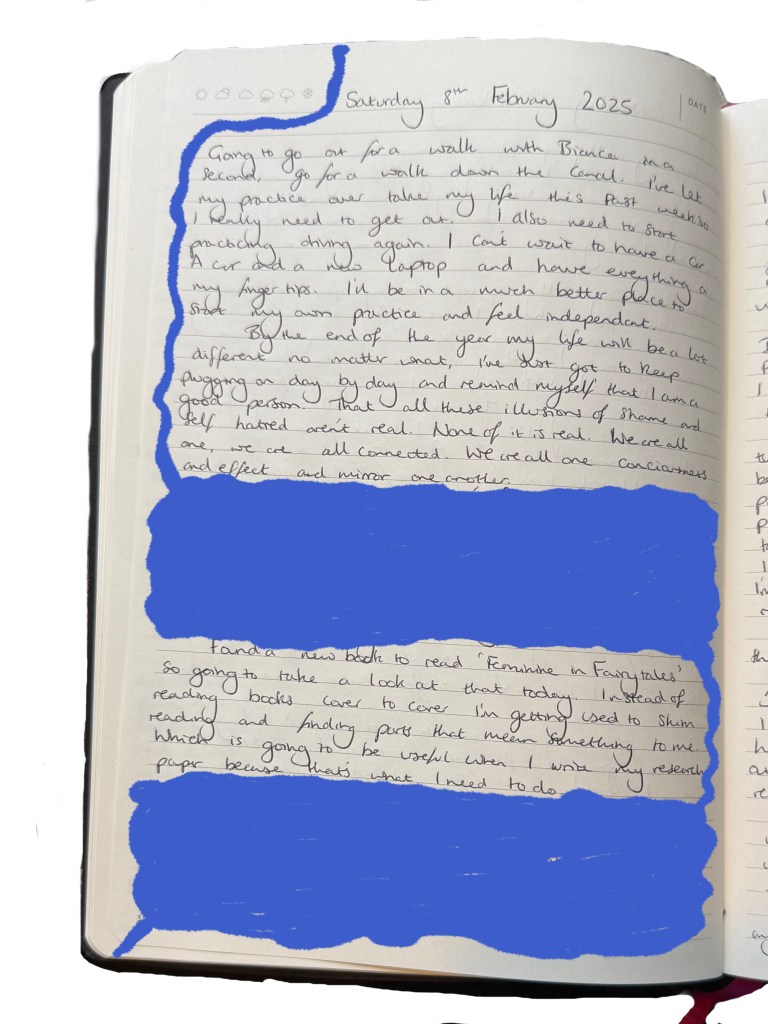 Saturday 8th February 2025
DATE
Going to go out for a walk with Bianca in a
second, go for a walk down the canal. I've let
my practice over take my life this past week so
I really need to get out. I also need to start
practicing driving again. I can't wait to have a car.
A car and a new laptop and have everything a
my finger tips. I'll be in a much better place to
start my own practice and feel independent.
By the end of the year my life will be a lot
different no matter what, I've just got to keep
plugging on day by day and remind myself that I am a
good person. That all these illusions of shame and
self hatred aren't real. None of it is real. We are all
one, we are all connected. We are all one conciousness
and effect and mirror one another.
Found a new book to read 'Feminine in Fairytales'
so going to take a look at that today. Instead of
reading books cover to cover I'm getting used to skim
reading and finding parts that mean something to me.
Which is going to be useful when I write my research
paper because that's what I need to do